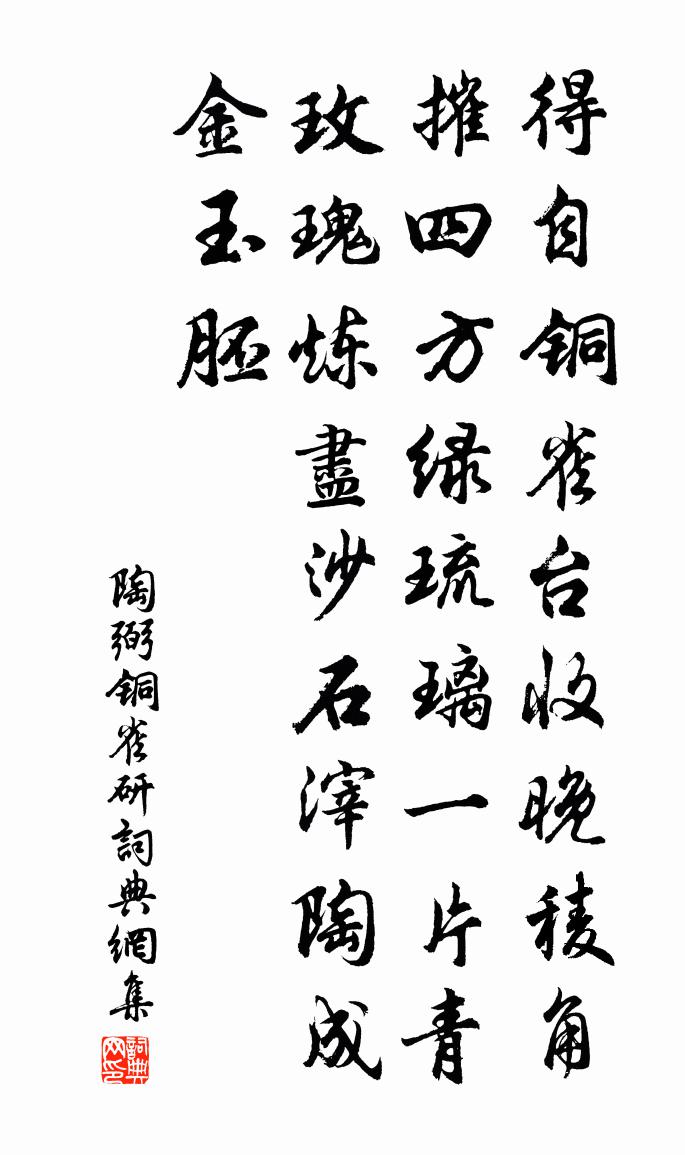 得自铜雀台收晚稜角
摧四方绿琉璃一片青
玫瑰炼盡沙石滓陶成
金玉胚
陶弼铜雀研詞典網集
詞典
网印